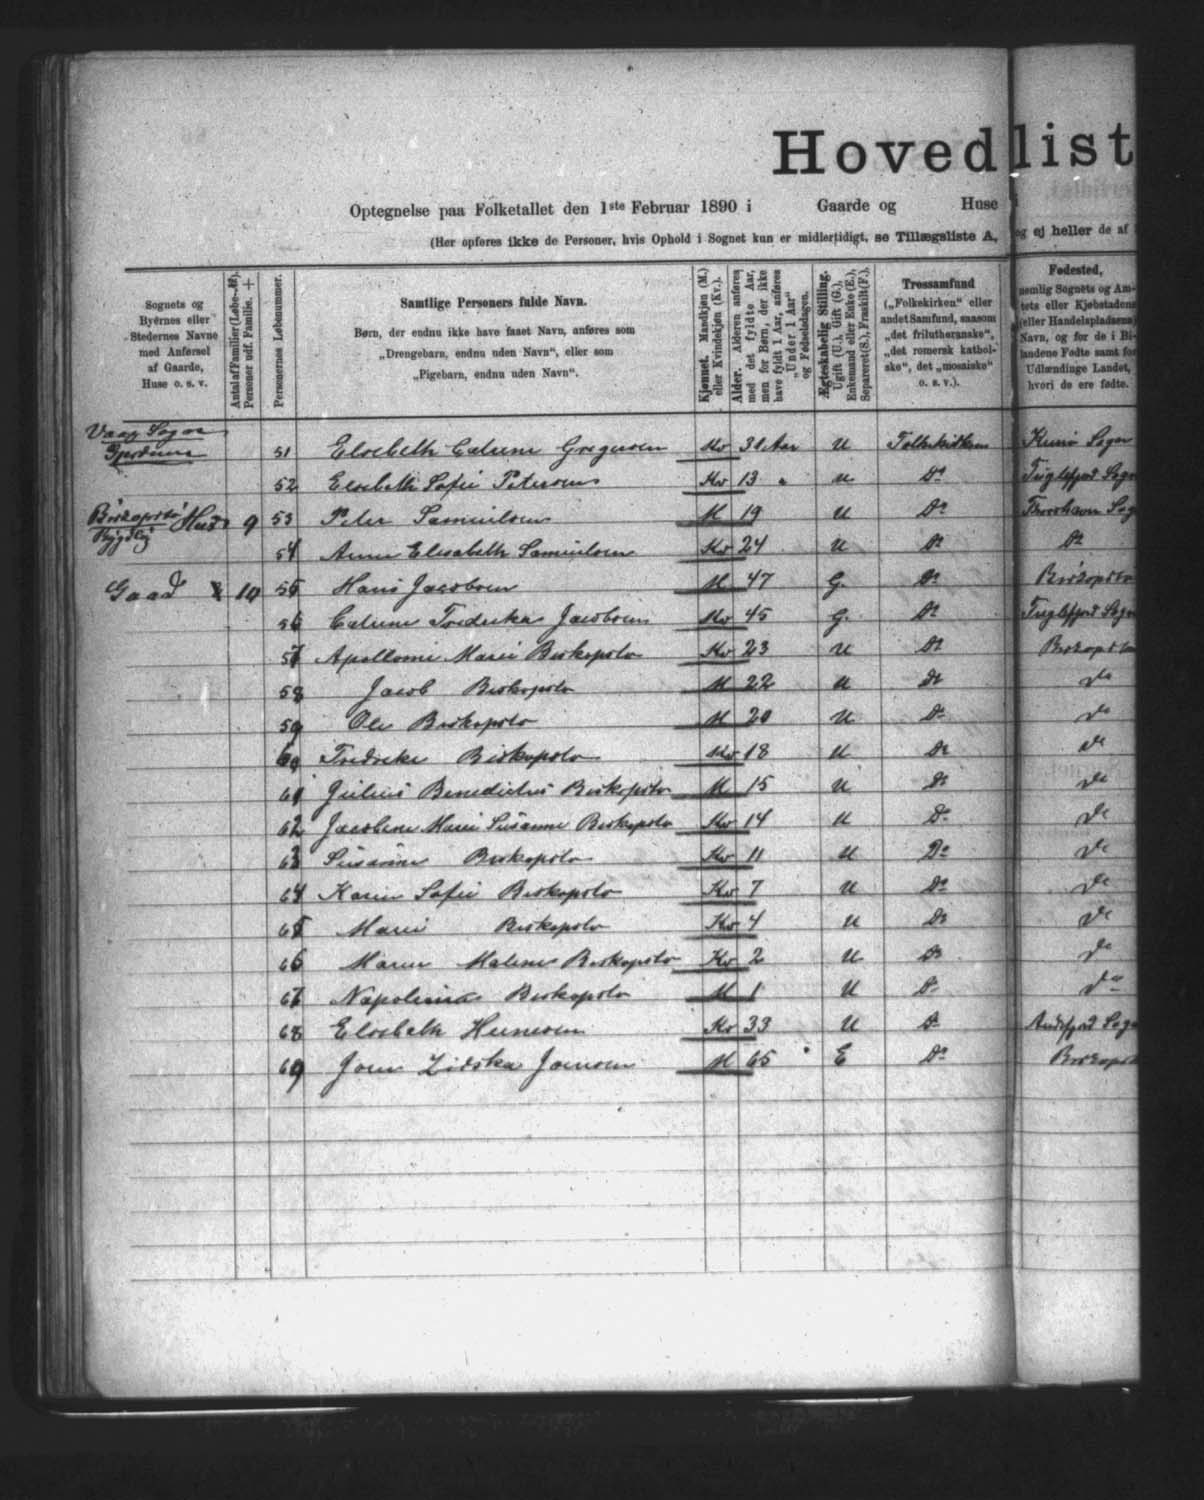 Hovedlist
Optegnelse paa Folketallet den 1ste Februar 1890 i Gaarde og Huse i
(Her opføres ikke de Personer, hvis Ophold i Sognet kun er midlertidigt, se Tillægsliste A, og ej heller de af
Sognets og Byernes eller Stedernes Navne med Anførsel af Gaarde, Huse o. s. v.
Antal af Familier (Løbe-№). Personer udf. Familie. +
Personernes Løbenummer.
Samtlige Personers fulde Navn.
Børn, der endnu ikke have faaet Navn, anføres som
„Drengebarn, endnu uden Navn", eller som
„Pigebarn, endnu uden Navn".
Kjønnet. Mandkjøn (M.) eller Kvindekjøn (Kv.).
Alder. Alderen anføres med det fyldte Aar, men for Børn, der ikke have fyldt 1 Aar, anføres „Under 1 Aar" og Fødselsdagen.
Ægteskabelig Stilling. Ugift (U.), Gift (G.), Enkemand eller Enke (E.), Separeret (S.), Fraskilt (F.).
Trossamfund („Folkekirken" eller andet Samfund, saasom „det frilutheranske", „det romersk katholske", det „mosaiske" o. s. v.).
Fødested, nemlig Sognets og Amtets eller Kjøbstadens (eller Handelspladsens) Navn, og for de i Bilandene Fødte samt for Udlændinge Landet, hvori de ere fødte.
Vaag Sogn
51 Elsebeth Catrine Gregersen Kv 31 Aar U Folkekirken Kunø Sogn
52 Elsebeth Sofie Petersen Kv 13 " U Do Fuglefjord Sogn
Biskopstø Hus 9 53 Peter Samuelsen M 19 U Do Thorshavn Sog
Bygdlag
54 Anne Elisabeth Samuelsen Kv 24 U Do Do
Gaard 10 55 Hans Jacobsen M 47 G. Do Biskopstø
56 Catrine Fredrikka Jacobsen Kv 45 G. Do Fuglefjord Sogn
57 Apollone Marie Biskopstø Kv 23 U Do Biskopstø
58 Jacob Biskopstø M 22 U Do Do
59 Ole Biskopstø M 20 U Do Do
60 Fredrike Biskopstø Kv 18 U Do Do
61 Julius Benedictus Biskopstø M 15 U Do Do
62 Jacobine Marie Susanne Biskopstø Kv 14 U Do Do
63 Susanne Biskopstø Kv 11 U Do Do
64 Karen Sofie Biskopstø Kv 7 U Do Do
65 Marie Biskopstø Kv 4 U Do Do
66 Maren Malene Biskopstø Kv 2 U Do Do
67 Biskopstø M 1 U Do Do
68 Elsebeth Kv 33 U Do Andefjord Sogn
69 Joen Joensen M 65 " E Do Biskopst